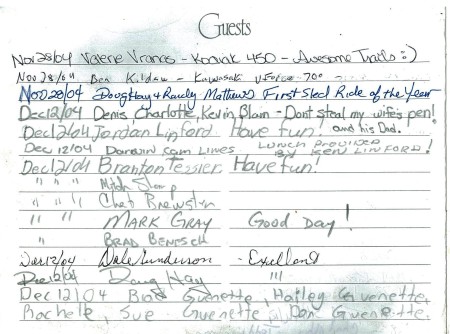 Guests
Nov 28/04 Valerie Vranas - Kodiak 450 - Awesome Trails :)
Nov 28/04 Ben Kildaw - Kawasaki V Force 700
Nov 28/04 Doug Hay & Randy Mathews First Sled Ride of the Year
Dec 12/04 Denis, Charlotte, Kevin, Blain - Dont steal my wife's pen!
Dec 12/04 Jordan Linford Have fun! and his Dad.
Dec 12/04 Darwin Cam Lines Lunch provided By Ken Linford!
Dec 12/04 Branton Tessier, Have fun!
" " " Mitch
" " " Chet Brewster
" " Mark Gray Good Day!
" Brad Benesch
Dec 12/04 Dale Gunderson - Excellent
Dec 12/04 Doug Hay !!!
Dec 12/04 Guenette, Hailey Guenette,
Rachele, Sue Guenette, Dan Guenette.